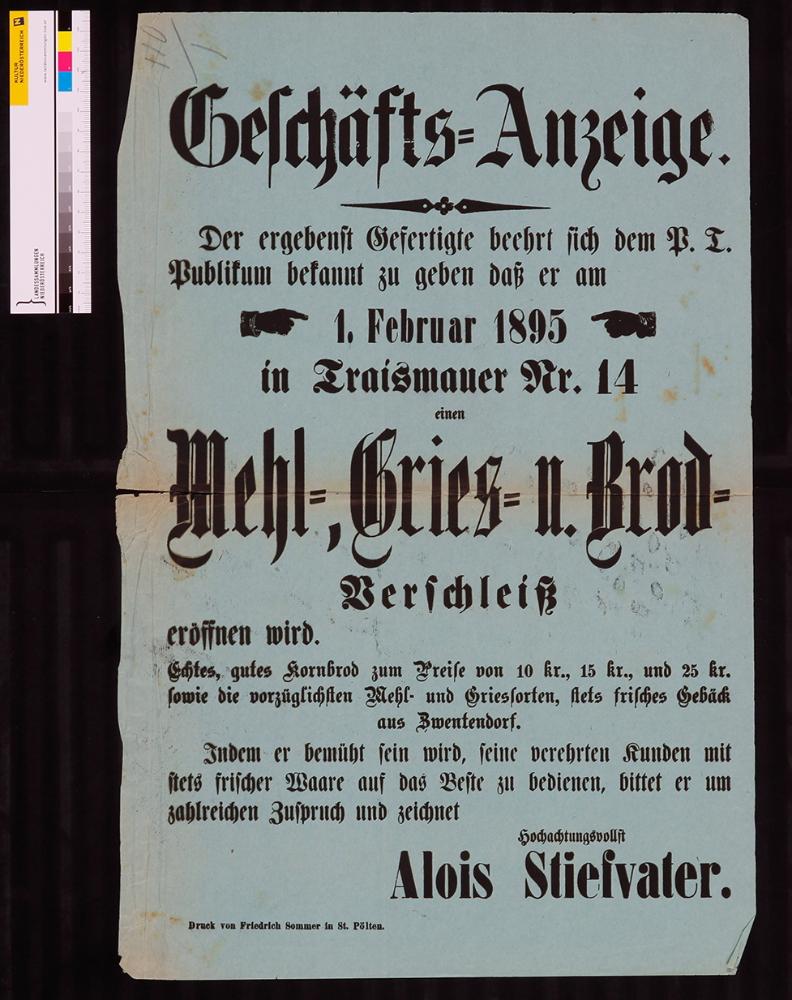 KULTUR
NIEDERÖSTERREICH
LANDESSAMMLUNGEN
NIEDERÖSTERREICH
Geschäfts=Anzeige.
Der ergebenst Gefertigte beehrt sich dem P. T.
Publikum bekannt zu geben daß er am
1. Februar 1895
in Traismauer Nr. 14
einen
Mehl=, Gries= u. Brod=
Verschleiß
eröffnen wird.
Echtes, gutes Kornbrod zum Preise von 10 kr., 15 kr., und 25 kr.
sowie die vorzüglichsten Mehl- und Griessorten, stets frisches Gebäck
aus Zwentendorf.
Indem er bemüht sein wird, seine verehrten Kunden mit
stets frischer Waare auf das Beste zu bedienen, bittet er um
zahlreichen Zuspruch und zeichnet
Hochachtungsvollst
Alois Stiefvater.
Druck von Friedrich Sommer in St. Pölten.